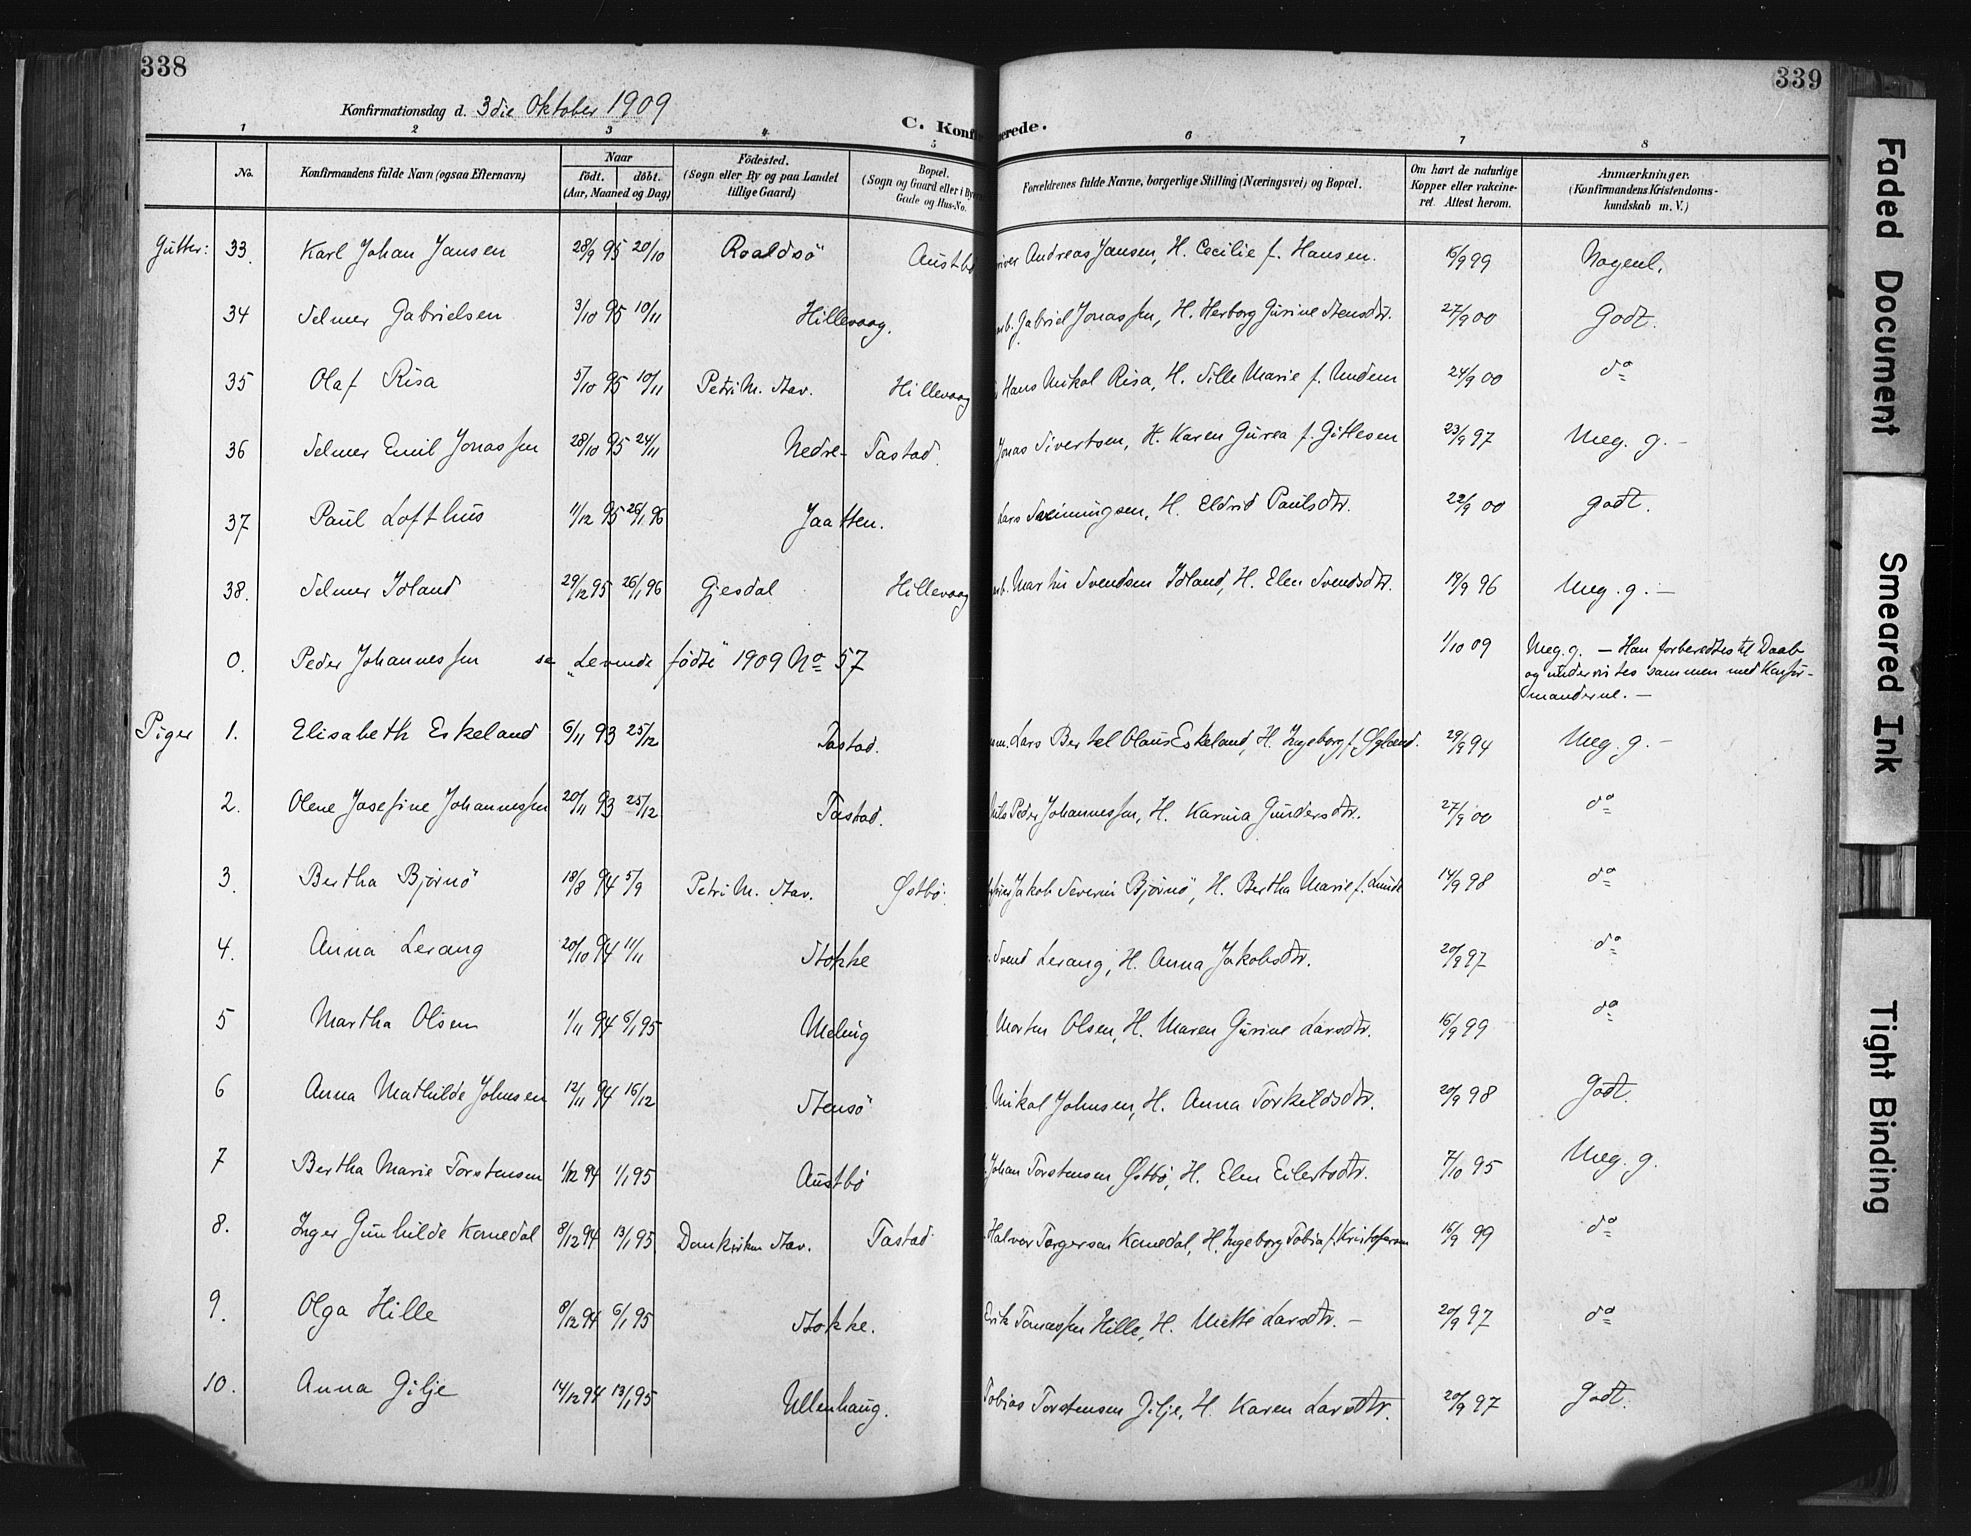 338
339
Konfirmationsdag d. 3die Oktober 1909
C. Konfi rerede.
1 2 3 4 5 6 7 8
No. Konfirmandens fulde Navn (ogsaa Efternavn) Naar født. døbt. (Aar, Maaned og Dag) Fødested. (Sogn eller By og paa Landet tillige Gaard) Bopæl. (Sogn og Gaard eller i Byen Gade og Hus-No. Forældrenes fulde Navne, borgerlige Stilling (Næringsvei) og Bopæl. Om havt de naturlige Kopper eller vakcineret. Attest herom. Anmærkninger. (Konfirmandens Kristendomskundskab m. V.)
Gutter: 33. Karl Johan Jansen 28/9 95 20/10 Roaldsö Austbö Andreas Jansen, H. Cecilie f. Hansen. 16/9 99 Nogenl.
34 Selmer Gabrielsen 3/10 95 10/11 Hillevaag. arb. Gabriel Jonassen, H. Herborg Gurine Stensdtr. 27/9 00 Godt.
35 Olaf Risa 5/10 95 10/11 Petri M. Stav. Hillevaag Hans Mikal Risa, H. Sille Marie f. Undem 24/9 00 do
36 Selmer Emil Jonassen 28/10 95 24/11 Nedre- Tastad. Jonas Sivertsen, H. Karen Gurea f. Gitlesen 23/9 97 Meg. g. -
37 Paul Lofthus 11/12 95 26/1 96 Jaatten. Lars Sveinungsen, H. Eldrid Paulsdtr. 22/9 00 godt.
38. Selmer Idland 29/12 95 26/1 96 Gjesdal Hillevaag arb. Martin Svendsen Idland, H. Elen Svendsdtr. 19/9 96 Meg. g. -
0. Peder Johannessen se "Levende fødte" 1909 No 57 1/10 09 Meg. g. - Han forberedtes til Daab og undervistes sammen med Konfirmanderne. -
Piger 1. Elisabeth Eskeland 6/11 93 25/12 Tastad. Lars Bertel Olaus Eskeland, H. Ingeborg f. Øglænd. 29/9 94 Meg. g. -
2. Olene Josefine Johannessen 20/11 93 25/12 Tastad. Nils Peder Johannessen, H. Karina Gundersdtr. 27/9 00 do
3. Bertha Bjørnö 18/8 94 5/9 Petri M. Stav. Østbö. Jakob Severin Bjørnö, H. Bertha Marie f. Lunde 14/9 98 do
4. Anna Lerang 20/10 94 11/11 Stokke Svend Lerang, H. Anna Jakobsdtr. 20/9 97 do
5 Martha Olsen 1/11 94 6/1 95 Meling Morten Olsen, H. Maren Gurine Larsdtr. 16/9 99 do
6 Anna Mathilde Johnsen 12/11 94 16/12 Stensö Mikal Johnsen, H. Anna Torkildsdtr. 20/9 98 Godt.
7 Bertha Marie Torstensen 1/12 94 1/1 95 Austbö Johan Torstensen Østbö, H. Elen Eilertsdtr. 7/10 95 Meg. g.
8. Inger Gunhilde Konedal 8/12 94 13/1 95 Domkirken Stav. Tastad Halvor Torgersen Konedal, H. Ingeborg Tobia f. Kristofersen 16/9 99 do
9. Olga Hille 8/12 94 6/1 95 Stokke. Erik Tomassen Hille, H. Mette Larsdtr. - 20/9 97 do
10. Anna Gilje 14/12 94 13/1 95 Ullenhaug. Tobias Torstensen Gilje, H. Karen Larsdtr. 20/9 97 Godt.
Faded Document
Smeared Ink
Tight Binding